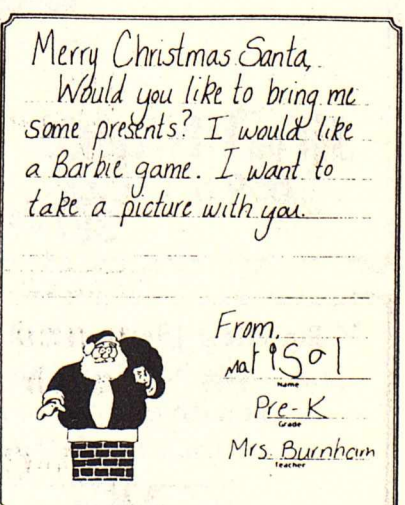 Merry Christmas Santa,
Would you like to bring me
some presents? I would like
a Barbie game. I want to
take a picture with you.
From,
Marisol
Name
Pre-K
Grade
Mrs. Burnham
Teacher